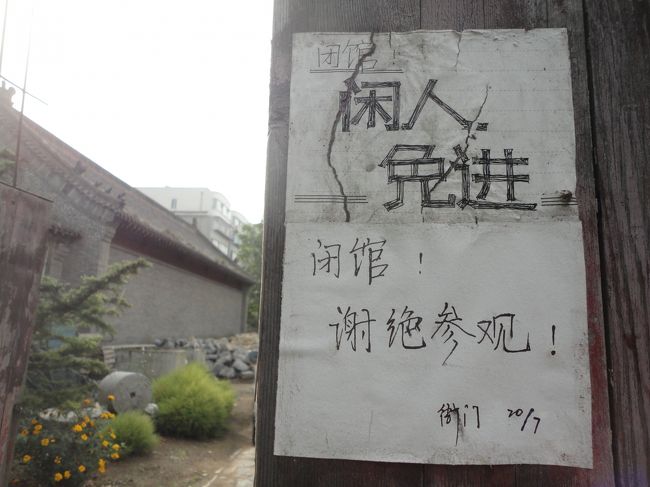 闭馆!
闲人
免进
闭馆!
谢绝参观!
衙门 20/7